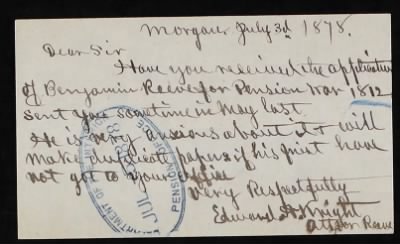 Morgan July 3d 1878.
Dear Sir
Have you received the application
of Benjamin Reeve for Pension War 1812
sent you sometime in May last
He is very anxious about it & will
make duplicate papers if his first have
not got to your Office
Very Respectfully
Edward A. Knight
Att for Reeve
PENSION OFFICE